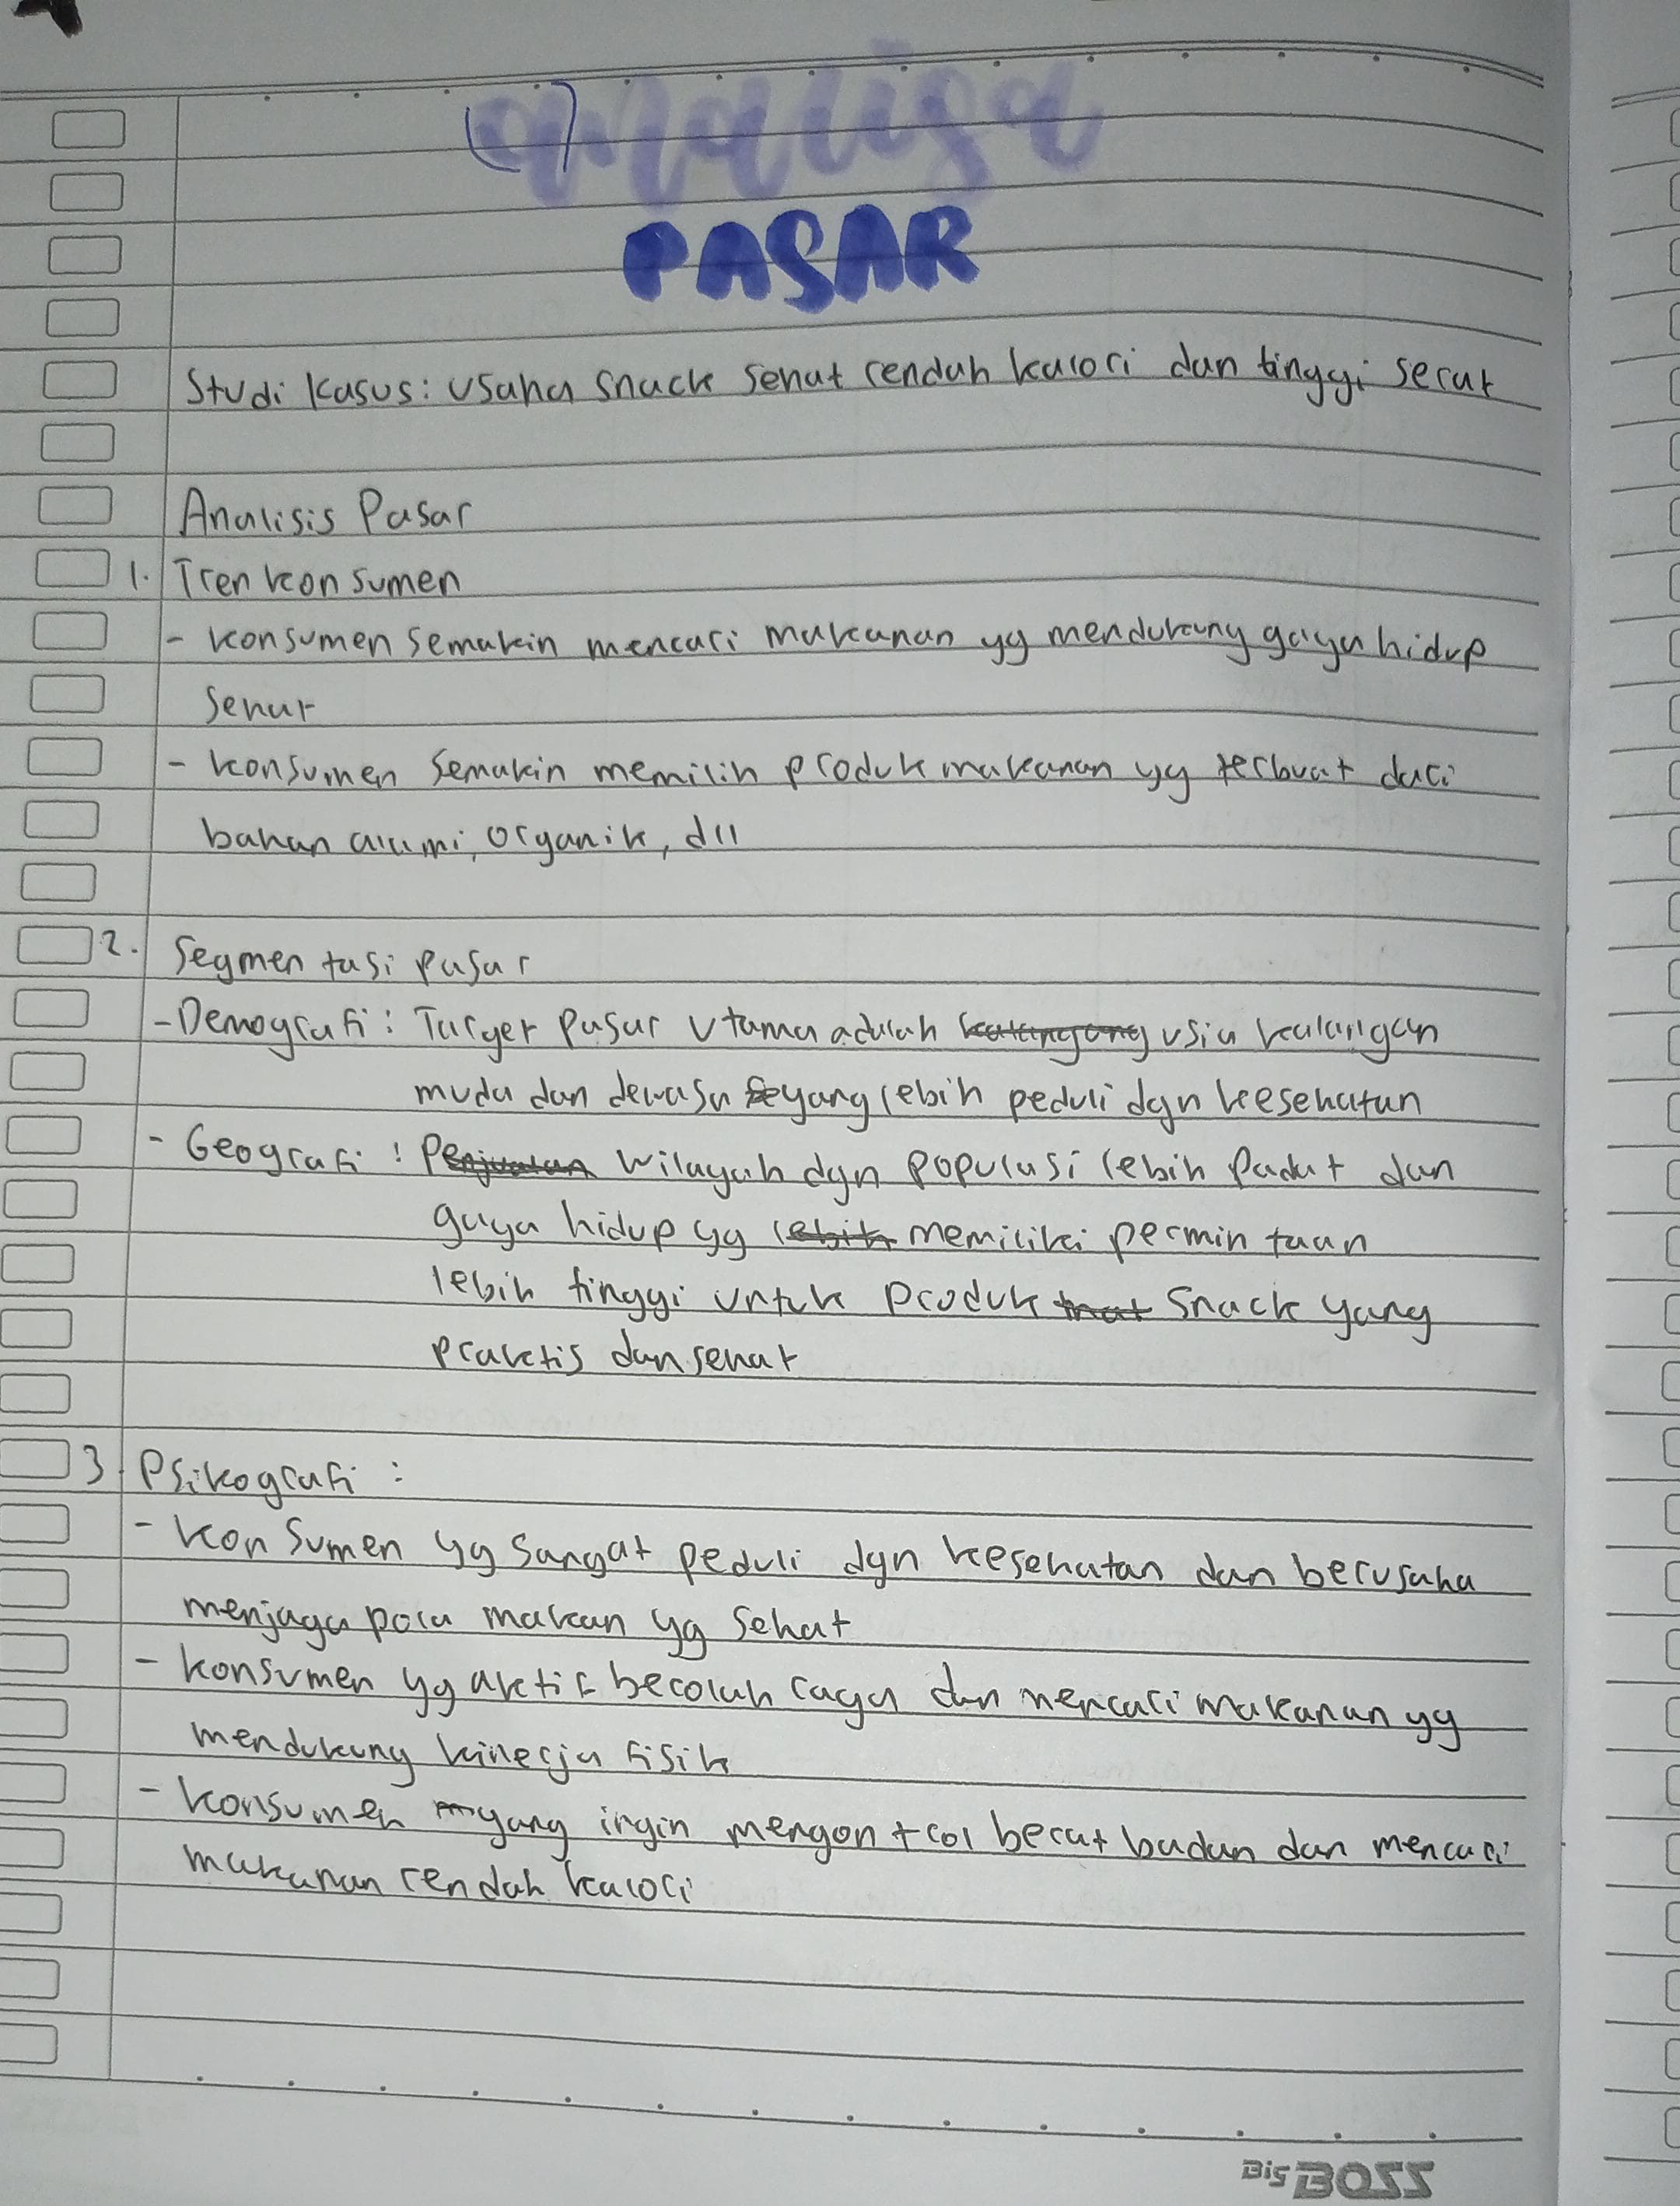 analisa
PASAR
Studi Kasus: Usaha snack sehat rendah kalori dan tinggi serat
Analisis Pasar
1. Tren konsumen
- konsumen semakin mencari makanan yg mendukung gaya hidup
sehat
- konsumen semakin memilih produk makanan yg terbuat dari
bahan alami, organik, dll
2. Segmentasi pasar
- Demografi : Target pasar utama adalah usia kalangan
muda dan dewasa yang lebih peduli dgn kesehatan
- Geografi : Penjualan wilayah dgn populasi lebih padat dan
gaya hidup yg lebih memiliki permintaan
lebih tinggi untuk produk snack yang
praktis dan sehat
3. Psikografi :
- konsumen yg sangat peduli dgn kesehatan dan berusaha
menjaga pola makan yg sehat
- konsumen yg aktif berolah raga dan mencari makanan yg
mendukung kinerja fisik
- konsumen yang ingin mengontrol berat badan dan mencari
makanan rendah kalori
Big BOSS